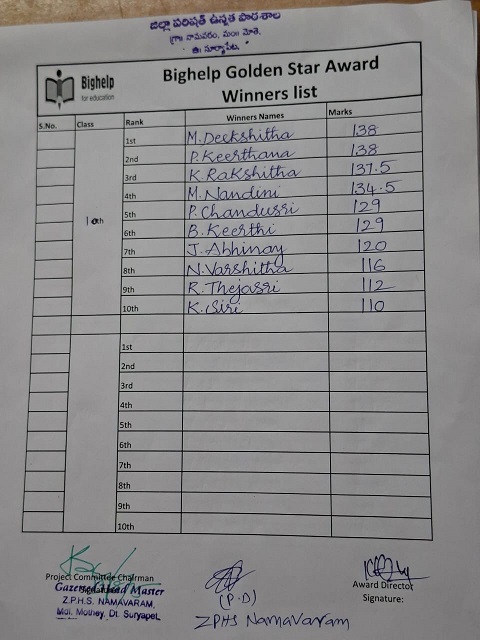 జిల్లా పరిషత్ ఉన్నత పాఠశాల
గ్రా: నామవరం, మం: మోతె,
జి: సూర్యాపేట.
Bighelp
for education
Bighelp Golden Star Award
Winners list
S.No. Class Rank Winners Names Marks
1st M. Deekshitha 138
2nd P. Keerthana 138
3rd K. Rakshitha 137.5
4th M. Nandini 134.5
10th 5th P. Chandussri 129
6th B. Keerthi 129
7th J. Abhinay 120
8th N. Varshitha 116
9th R. Thejasri 112
10th K. Siri 110
1st
2nd
3rd
4th
5th
6th
7th
8th
9th
10th
Project Committee Chairman
Gazetted Head Master
Z.P.H.S. NAMAVARAM,
Mdl. Mothey, Dt. Suryapet.
(P.D)
ZPHS Namavaram
Award Director
Signature: